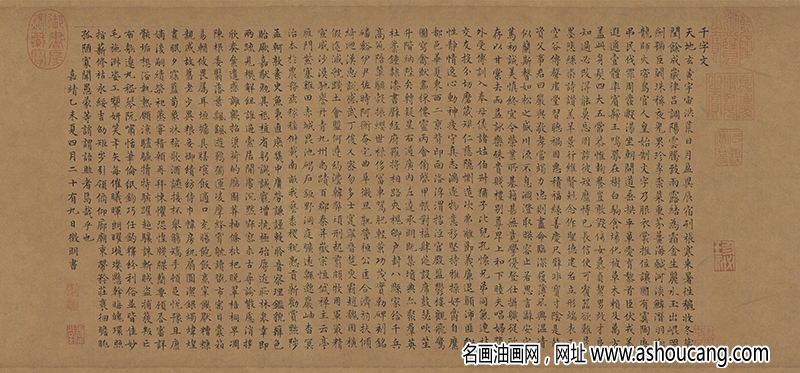 千字文
天地玄黃宇宙洪荒日月盈昃辰宿列張寒來暑往秋收冬藏
閏餘成歲律呂調陽雲騰致雨露結為霜金生麗水玉出崑岡
劍號巨闕珠稱夜光果珍李柰菜重芥薑海鹹河淡鱗潛羽翔
龍師火帝鳥官人皇始制文字乃服衣裳推位讓國有虞陶唐
弔民伐罪周發殷湯坐朝問道垂拱平章愛育黎首臣伏戎羌
遐邇壹體率賓歸王鳴鳳在樹白駒食場化被草木賴及萬方
蓋此身髮四大五常恭惟鞠養豈敢毀傷女慕貞潔男效才良
知過必改得能莫忘罔談彼短靡恃己長信使可覆器欲難量
墨悲絲染詩讚羔羊景行維賢克念作聖德建名立形端表正
空谷傳聲虛堂習聽禍因惡積福緣善慶尺璧非寶寸陰是競
資父事君曰嚴與敬孝當竭力忠則盡命臨深履薄夙興溫凊
似蘭斯馨如松之盛川流不息淵澄取映容止若思言辭安定
篤初誠美慎終宜令榮業所基籍甚無竟學優登仕攝職從政
存以甘棠去而益詠樂殊貴賤禮別尊卑上和下睦夫唱婦隨
外受傅訓入奉母儀諸姑伯叔猶子比兒孔懷兄弟同氣連枝
交友投分切磨箴規仁慈隱惻造次弗離節義廉退顛沛匪虧
性靜情逸心動神疲守真志滿逐物意移堅持雅操好爵自縻
都邑華夏東西二京背邙面洛浮渭據涇宮殿盤鬱樓觀飛驚
圖寫禽獸畫綵仙靈丙舍傍啟甲帳對楹肆筵設席鼓瑟吹笙
升階納陛弁轉疑星右通廣內左達承明既集墳典亦聚群英
杜稿鍾隸漆書壁經府羅將相路俠槐卿戶封八縣家給千兵
高冠陪輦驅轂振纓世祿侈富車駕肥輕策功茂實勒碑刻銘
磻溪伊尹佐時阿衡奄宅曲阜微旦孰營桓公匡合濟弱扶傾
綺迴漢惠說感武丁俊乂密勿多士寔寧晉楚更霸趙魏困橫
假途滅虢踐土會盟何遵約法韓弊煩刑起翦頗牧用軍最精
宣威沙漠馳譽丹青九州禹跡百郡秦并嶽宗恆岱禪主云亭
雁門紫塞雞田赤城昆池碣石鉅野洞庭曠遠綿邈巖岫杳冥
治本於農務茲稼穡俶載南畝我藝黍稷稅熟貢新勸賞黜陟
孟軻敦素史魚秉直庶幾中庸勞謙謹敕聆音察理鑑貌辨色
貽厥嘉猷勉其祗植省躬譏誡寵增抗極殆辱近恥林皋幸即
兩疏見機解組誰逼索居閒處沉默寂寥求古尋論散慮逍遙
欣奏累遣慼謝歡招渠荷的歷園莽抽條枇杷晚翠梧桐早凋
陳根委翳落葉飄颻遊鵾獨運凌摩絳霄耽讀翫市寓目囊箱
易輶攸畏屬耳垣牆具膳飧飯適口充腸飽飫烹宰飢厭糟糠
親戚故舊老少異糧妾御績紡侍巾帷房紈扇圓潔銀燭煒煌
晝眠夕寐藍筍象床弦歌酒讌接杯舉觴矯手頓足悅豫且康
嫡後嗣續祭祀蒸嘗稽顙再拜悚懼恐惶牋牒簡要顧答審詳
骸垢想浴執熱願涼驢騾犢特駭躍超驤誅斬賊盜捕獲叛亡
布射遼丸嵇琴阮嘯恬筆倫紙鈞巧任釣釋紛利俗並皆佳妙
毛施淑姿工顰妍笑年矢每催曦暉朗曜璇璣懸斡晦魄環照
指薪修祜永綏吉劭矩步引領俯仰廊廟束帶矜莊裴徊瞻眺
孤陋寡聞愚蒙等誚謂語助者焉哉乎也
嘉靖乙未夏四月二十有九日徵明書
名画油画网，网址 www.ashoucang.com